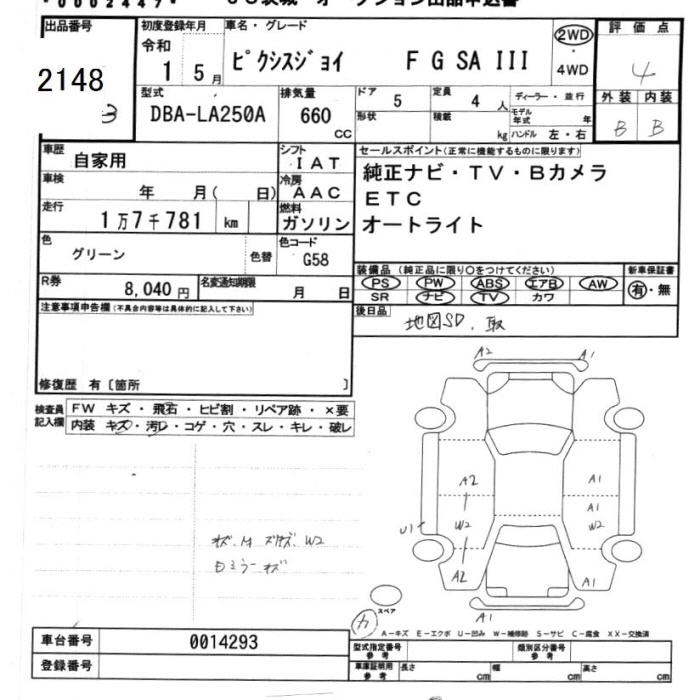 出品番号
2148
3
初度登録年月
令和
1 5月
車名・グレード
ピクシスジョイ F G SA III
2WD
・
4WD
評価点
4
型式
DBA-LA250A
排気量
660
CC
ドア
5
定員
4 人
形状
積載
kg
ディーラー・並行
モデル年式 年
ハンドル 左・右
外装 内装
B B
車歴
自家用
シフト
IAT
車検
年 月( 日)
冷房
AAC
走行
1万7千781 km
燃料
ガソリン
色
グリーン
色替
色コード
G58
R券
8,040円
名変通知期限
月 日
セールスポイント(正常に機能するものに限ります)
純正ナビ・TV・Bカメラ
ETC
オートライト
装備品(純正品に限り○をつけてください)
PS PW ABS エアB AW
SR ナビ TV カワ
新車保証書
有・無
後日品
地図SD、取
注意事項申告欄(不具合内容等は具体的に記入して下さい)
修復歴 有〔箇所 〕
検査員記入欄
FW キズ・飛石・ヒビ割・リペア跡・×要
内装 キズ・汚レ・コゲ・穴・スレ・キレ・破レ
A2 A1
A2 A1
A1
W2 W2
U1
A2 A1
A1
W2
スペア
A-キズ E-エクボ U-凹み W-補修跡 S-サビ C-腐食 XX-交換済
車台番号
0014293
登録番号
型式指定番号
参考
類別区分番号
参考
車庫証明用
参考
長さ cm
幅 cm
高さ cm